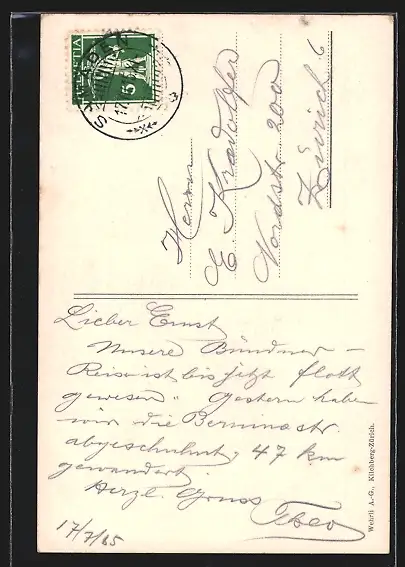 HELVETIA
5
Herrn
E Kradolfer
Nordstr. 200
Zürich 6
Lieber Ernst
Unsere Bündner-
Reise ist bis jetzt flott
gewesen. Gestern haben
wir die Berninastr.
47 km
gewandert.
Herzl. Gruss
Theo
17/7/25
Wehrli A.-G., Kilchberg-Zürich.